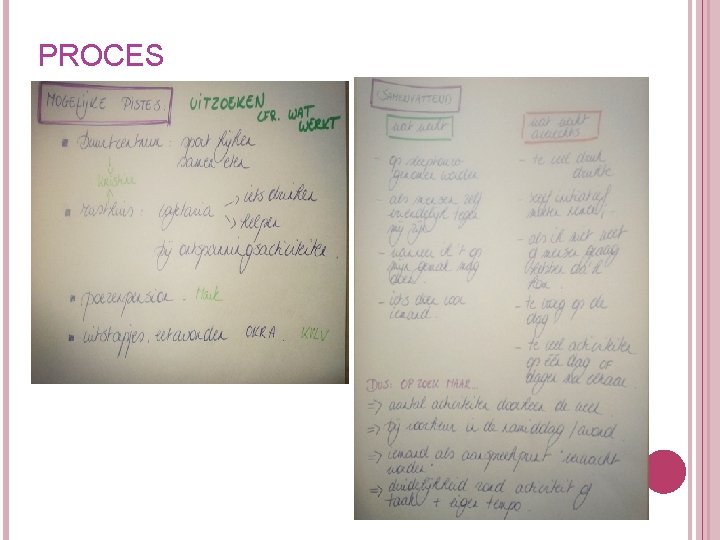 PROCES
MOGELIJKE PISTES:
UITZOEKEN
CFR. WAT
WERKT
Buurtcentrum: sport kijken
samen eten
Kristine
Rusthuis: cafetaria
iets drinken
helpen
bij ontspanningsactiviteiten.
poezenpension. Mark
uitstapjes, eetavonden OKRA. KVLV
SAMENVATTEND
wat werkt
- op sleeptouw
genomen worden
- als mensen zelf
vriendelijk tegen
mij zijn
- wanneer ik 't op
mijn gemak mag
doen.
- iets doen voor
iemand.
wat werkt
averechts
- te veel druk
drukte
- zelf initiatief
moeten nemen.
- als ik niet weet
of mensen graag
hebben da'k
kom.
- te vroeg op de
dag
- te veel activiteiten
op één dag OF
dagen na elkaar.
DUS: OP ZOEK NAAR...
=> aantal activiteiten doorheen de week
=> bij voorkeur in de namiddag / avond.
=> iemand als aanspreekpunt "verwacht
worden"
=> duidelijkheid rond activiteit of
taak + eigen tempo.